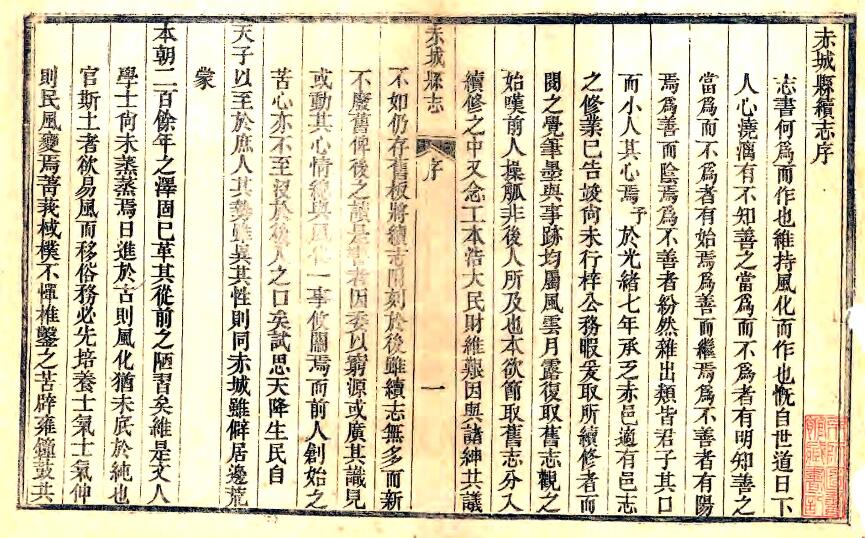 赤城縣續志序
志書何爲而作也維持風化而作也慨自世道日下
人心澆漓有不知善之當爲而不爲者有明知善之
當爲而不爲者有始焉爲善而繼焉爲不善者有陽
焉爲善而陰焉爲不善者紛然雜出類皆君子其口
而小人其心焉予於光緒七年承乏赤邑適有邑志
之修業已告竣尚未行梓公務暇爰取所續修者而
閱之覺筆墨與事跡均屬風雲月露復取舊志觀之
始嘆前人操觚非後人所及也本欲節取舊志分入
續修之中又念工本浩大民財維艱因與諸紳共議
赤城縣志
序
一
不如仍存舊板將續志開刻於後雖續志無多而新
不廢舊俾後之讀是書者因委以窮源或廣其識見
或動其心情總與風化一事攸關焉而前人創始之
苦心亦不至沒於後人之口矣試思天降生民自
天子以至於庶人其勢雖異其性則同赤城雖僻居邊荒
蒙
本朝二百餘年之澤固已革其從前之陋習矣維是文人
學士尚未蒸蒸焉日進於古則風化猶未底於純也
官斯土者欲易風而移俗務必先培養士氣士氣伸
則民風變焉菁莪棫樸不憚椎鑿之苦辟雍鐘鼓共